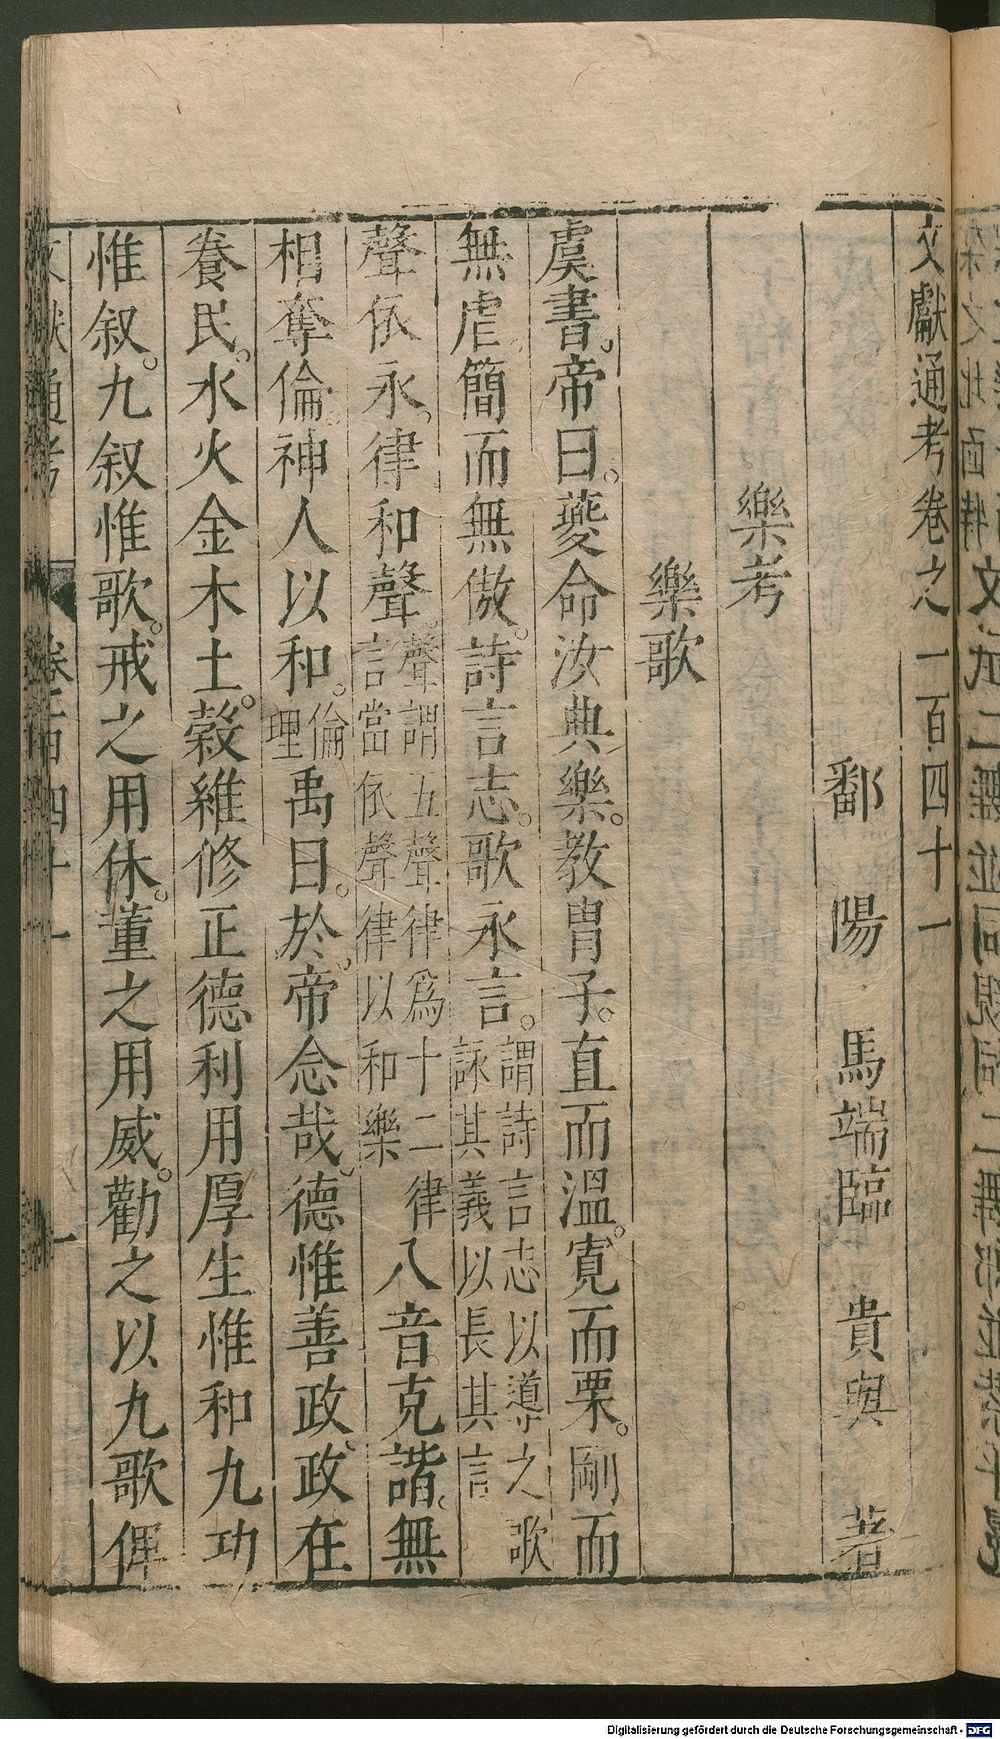 文獻通考卷之一百四十一
鄱陽馬端臨貴與著
樂考
樂歌
虞書。帝曰。夔命汝典樂。教胄子。直而溫。寬而栗。剛而
無虐。簡而無傲。詩言志。歌永言。謂詩言志以導之歌詠其義以長其言
聲依永。律和聲。聲謂五聲律爲十二律言當依聲律以和樂八音克諧。無
相奪倫。神人以和。倫理禹曰。於。帝念哉。德惟善政。政在
養民。水火金木土。穀維修正德利用厚生惟和九功
惟叙。九叙惟歌。戒之用休。董之用威。勸之以九歌俾
Digitalisierung gefördert durch die Deutsche Forschungsgemeinschaft - DFG